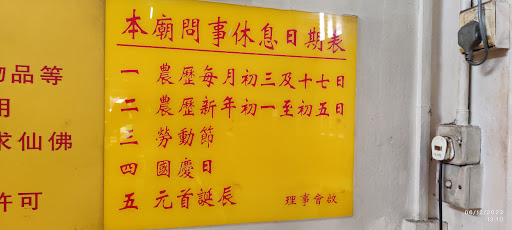 本廟問事休息日期表
一 農歷每月初三及十七日
二 農歷新年初一至初五日
三 勞動節
四 國慶日
五 元首誕辰
理事會啟
物品等
用
求仙佛
許可
06/12/2023 13:10